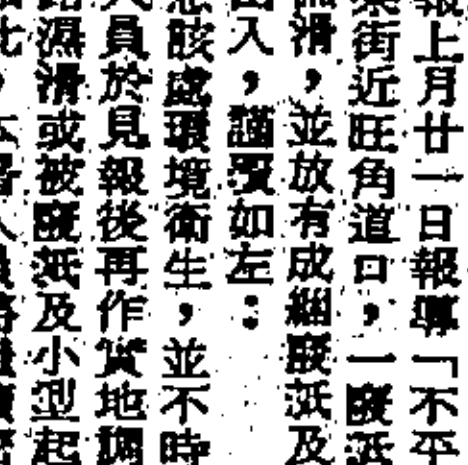 報上月廿一日報導「不平
業街近旺角道口，一廢紙
滑，並放有成綑廢紙及
出入，謹覆如左：
該處環境衛生，並不時
人員於見報後再作實地調
濕滑或被廢紙及小型起